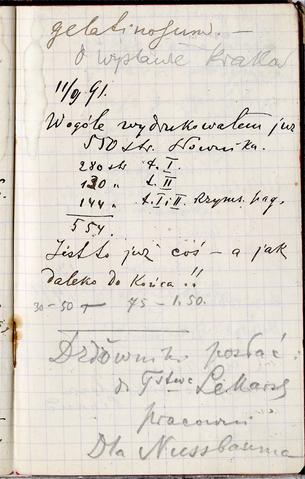 gelatinosum. —
O wystawie Kraków
11/9 91.
Wogóle wydrukowałem już
550 str. Słownika.
280 str. t. I.
130 „ t. II
144 „ t. I i II. Rzyms. pag.
554.
Jest to już coś — a jak
daleko do Końca!!
30 – 50 — 75 – 1.50.
posłać
do
pracowni
Dla Nussbauma